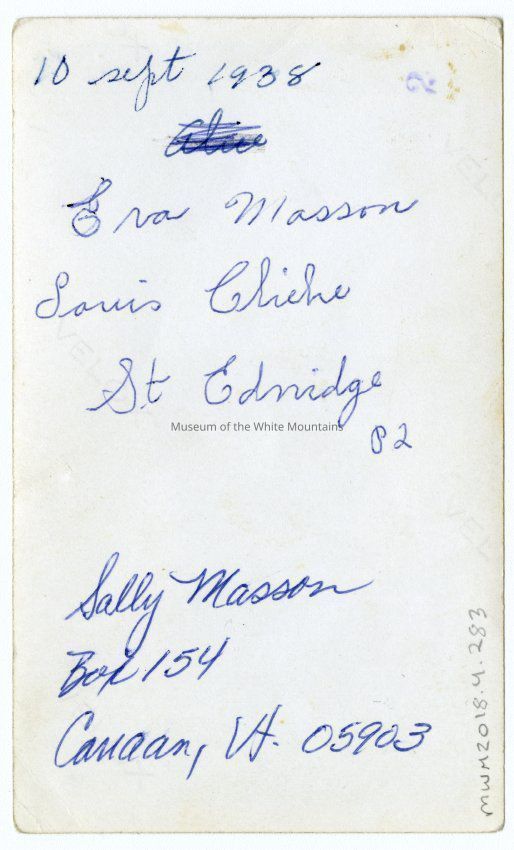 10 sept 1938
Eva Masson
Louis Cliche
St Edwidge
P2
Museum of the White Mountains
Sally Masson
Box 154
Canaan, Vt. 05903
MWM2018.4.283
2
VEL
VEL
VEL